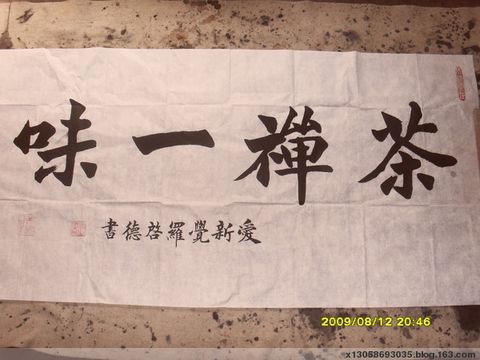 茶禪一味
愛新覺羅啓德書
2009/08/12 20:46
x13058693035.blog.163.com